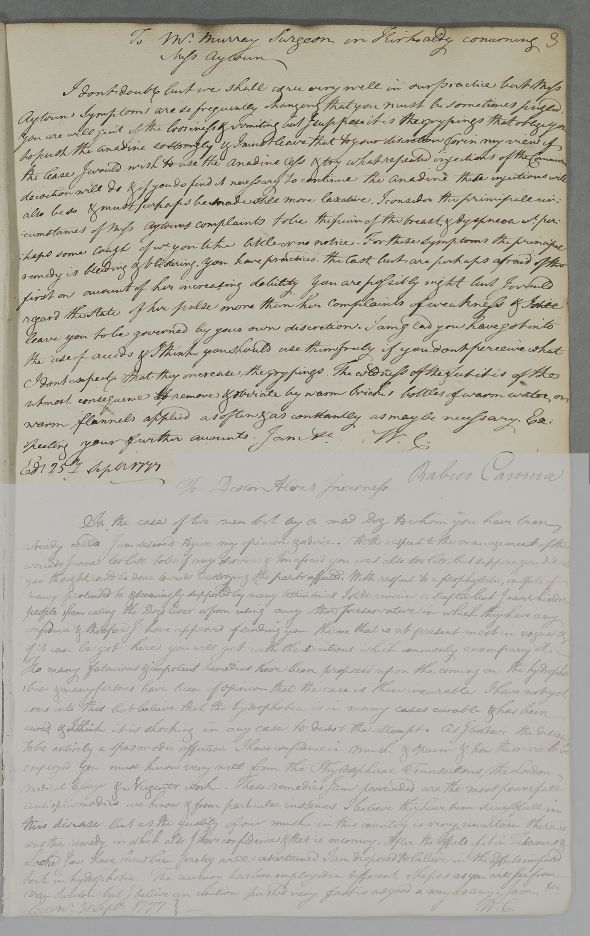 To Mr. Murray Surgeon in Kirkcaldy concerning 3
Miss Aytoun
I dont doubt but we shall agree very well in our practice but Miss
Aytouns Symptoms are so frequently changing that you must be sometimes puzled
You are well quit of the Costiveness & vomiting but I suppose it is the gripings that oblige you
to push the anodine so strongly & I must leave that to your discretion for in my view of
the case I would wish to use the Anodine less & try what repeated injections of the Common
decoction will do & if you do find it necessary to continue the Anodine these injections will
also be so & must perhaps be made still more laxative. I consider the principall cir-
cumstances of Miss Aytouns complaints to be the pain of the breast & dyspnoea wt. per-
haps some cough of wc. you take little or no notice. For these symptoms the principal
remedy is bleeding & blistering. You have practised the last but are perhaps afraid of the
first on account of her increasing debility You are possibly right but I would
regard the State of her pulse more than her complaints of weakness &
leave you to be governed by your own discretion. I am glad you have got into
the use of acids & I think you should use them freely if you dont perceive what
I dont suspect that they increase the gripings. The coldness of the feet it is of the
utmost consequence to remove & obviate by warm bricks bottles of warm water or
warm flannels applied as often & as constantly as may be necessary. Ex-
pecting your further accounts. I am &c W. C.
Edr. 25th Septr. 1777
To Doctor Alves Inverness Rabies Canina
In the case of two men bit by a mad Dog to whom you have been
already called I am desired to give my opinion & advice. With respect to the management of the
wounds it comes too late to be of any service & I am afraid you was also too late but suppose you did
you thought could be done towards destroying the parts affected. With respect to a prophylaxis, in spite of
many pretended to & seemingly supported by many testimonies I still remain a Sceptic but I never hinder
people from eating the Dogs liver or from using any other preservative in which they have any
confidence & therefore I have approved of sending you the one that is at present most in vogue &
if it can be got here you will get with the directions which commonly accompany it.
Tho many fallacious & impotent remedies have been proposed upon the coming on the hydropho-
bia & many persons have been of opinion that the case is then incurable I have not yet
come into this but believe that the hydrophobia is in many cases curable & has been
cured & I think it is shocking in any case to desert the attempt. As I believe the disease
to be entirely a spasmodic affection I have confidence in musk & opium & how these are to be
employed you must know very well from the Phylosophical Transactions, the London
medical Essays & Nugents work. These remedies I am persuaded are the most powerfull
antispasmodics we know & from particular instances I believe they have been successfull in
this disease but as the quality of our musk in this country is very uncertain there is
another remedy in which also I have confidence & that is mercury. After the effects of it in Tetanus &
Locked Jaw have now been pretty well ascertained I am disposed to believe in the effects imputed
to it in hydrophobia. The mercury has been employed in different shapes as you will see from
Van Swieten but I believe an unction pushed very fast is as good a way as any. I am &c
Edinr. 30 Septr. 1777 W. C.